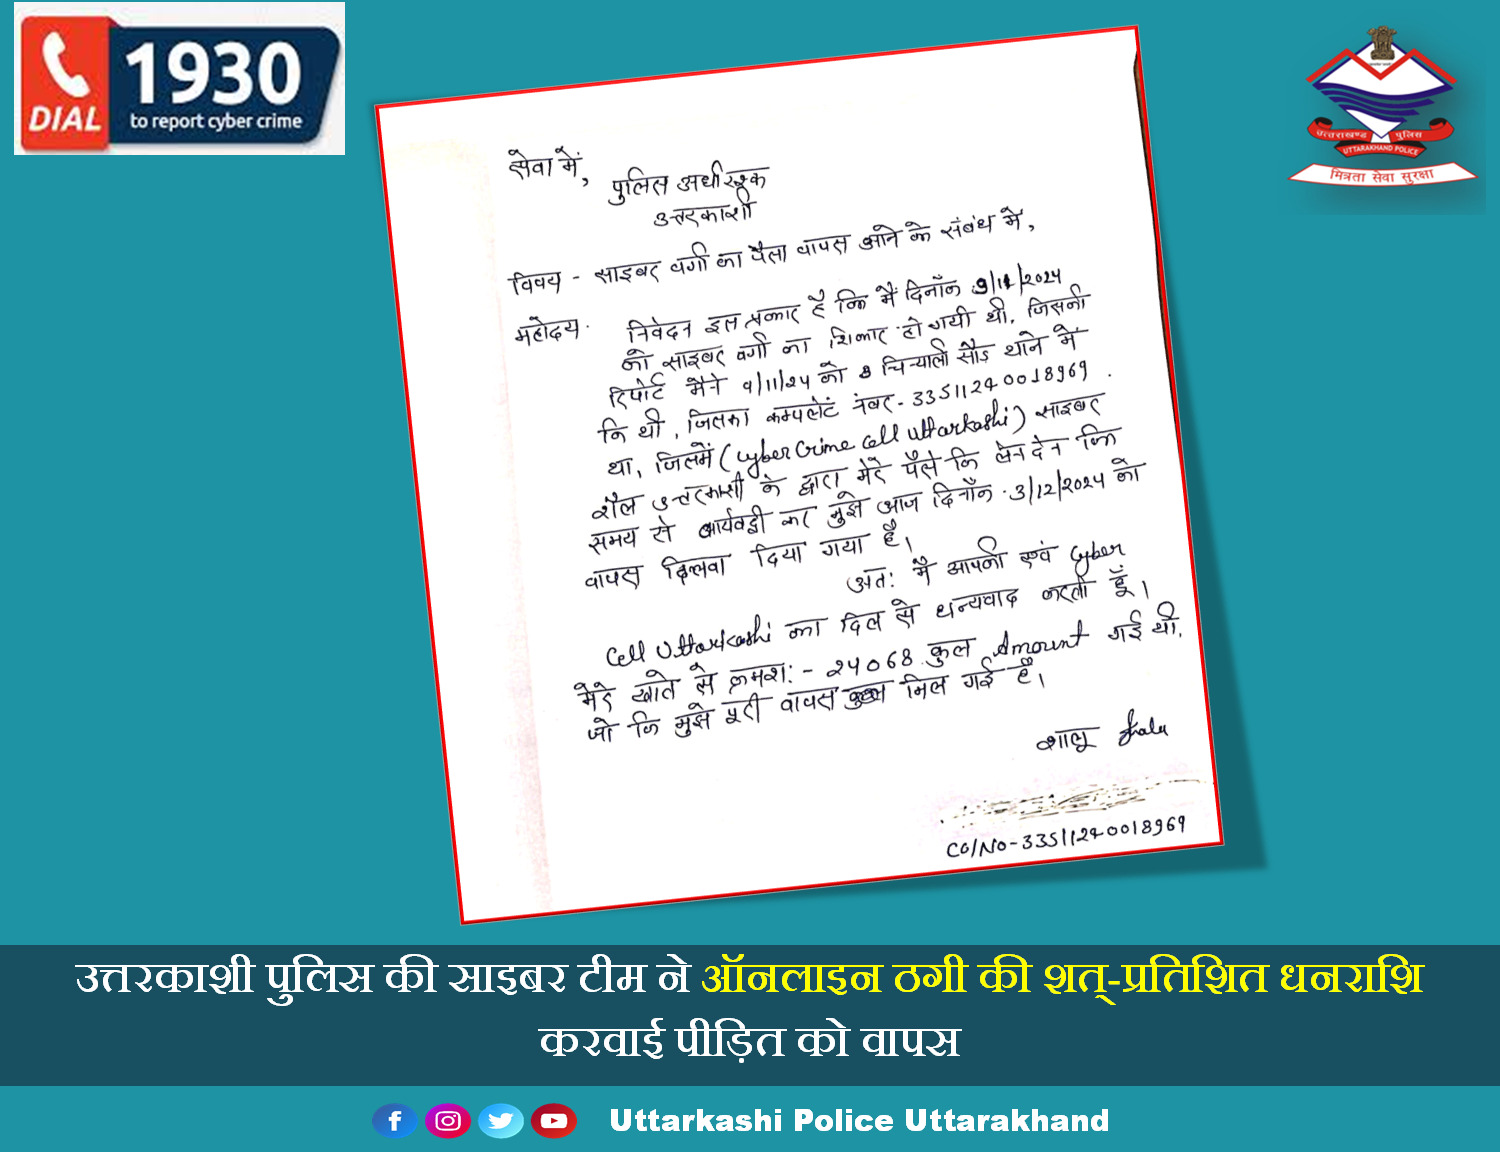 DIAL 1930
to report cyber crime
उत्तराखण्ड पुलिस
UTTARAKHAND POLICE
मित्रता सेवा सुरक्षा
सेवा में,
पुलिस अधीक्षक
उत्तरकाशी
विषय - साइबर ठगी का पैसा वापस आने के संबंध में,
महोदय
निवेदन इस प्रकार है कि मैं दिनाँक 9/11/2024
को साइबर ठगी का शिकार हो गयी थी, जिसकी
रिपोर्ट मैने 9/11/24 को चिन्याली सौड थाने में
कि थी, जिसका कम्पलेंट नंबर - 33511240018969.
था, जिसमें (Cyber Crime Cell Uttarkashi) साइबर
शैल उत्तरकाशी के द्वारा मेरे पैसे कि लेनदेन कि
समय से कार्यवाही कर मुझे आज दिनाँक 3/12/2024 को
वापस दिलवा दिया गया है।
अतः मै आपकी एवं Cyber
Cell Uttarkashi का दिल से धन्यवाद करती हूँ।
मेरे खाते से क्रमशः - 24068 कुल Amount गई थी,
जो कि मुझे पूरी वापस मिल गई है।
शालू Shalu
CO/NO-33511240018969
उत्तरकाशी पुलिस की साइबर टीम ने ऑनलाइन ठगी की शत्-प्रतिशित धनराशि
करवाई पीड़ित को वापस
Uttarkashi Police Uttarakhand